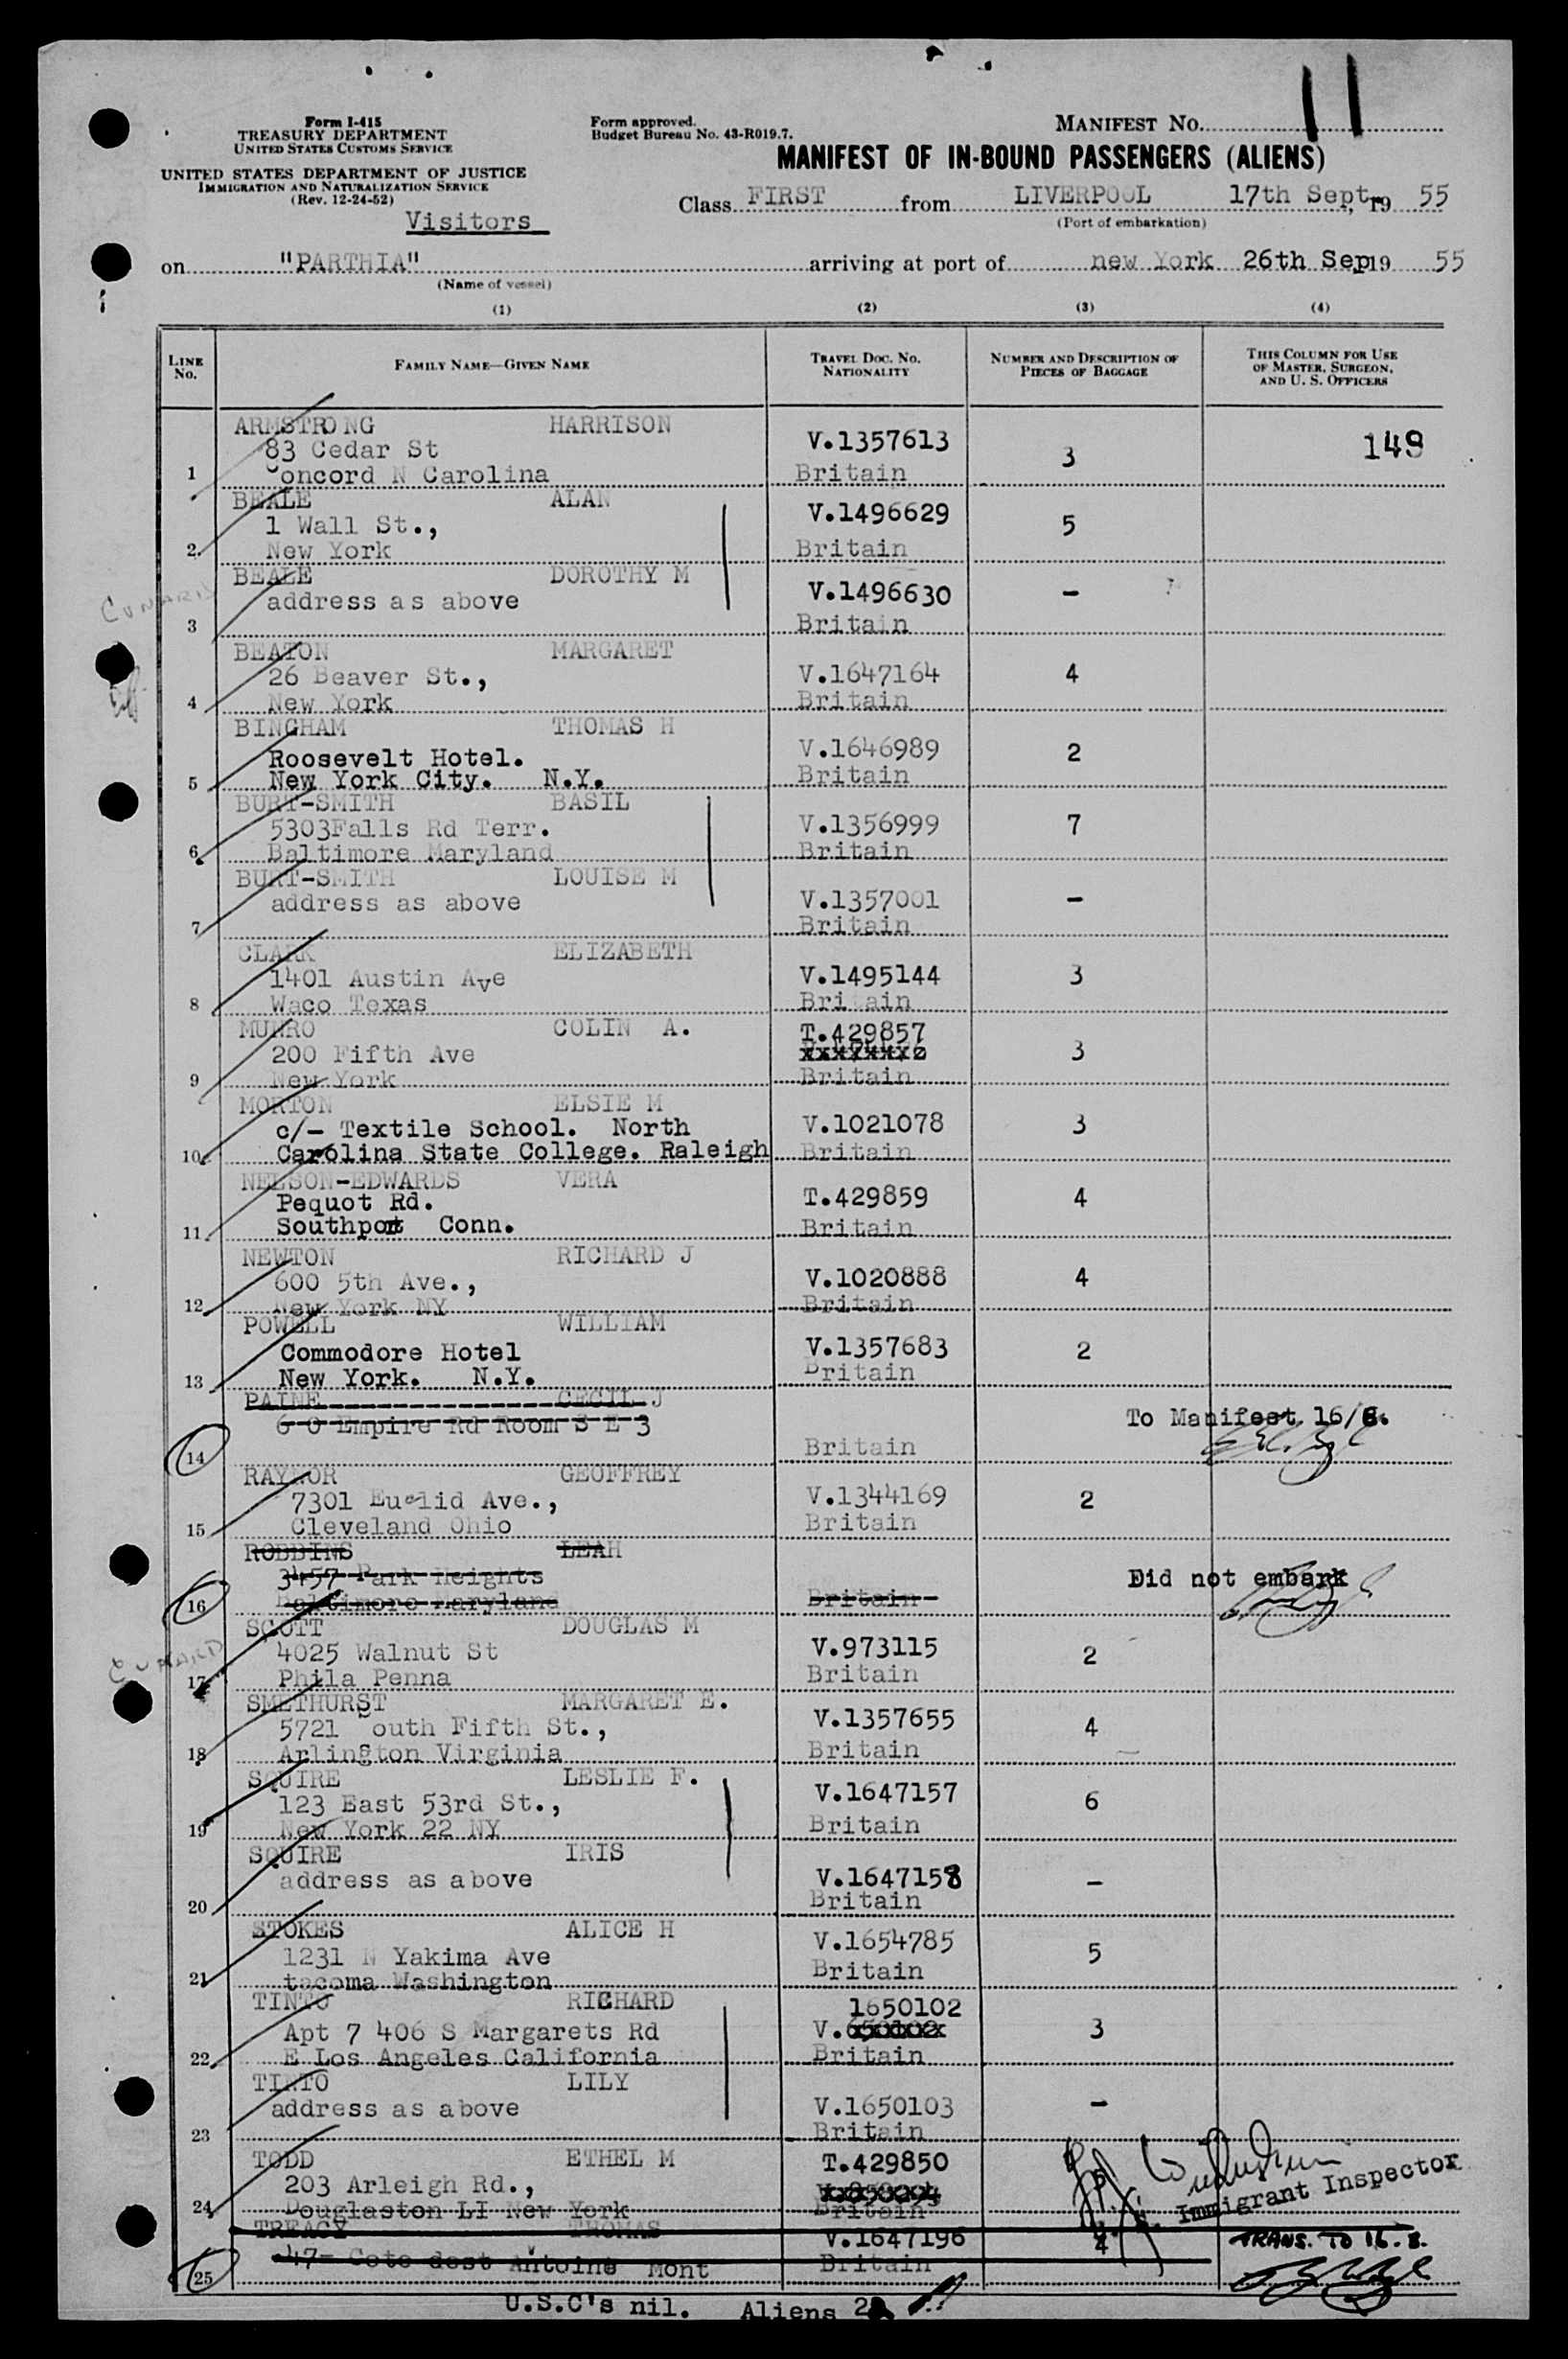 11
Form I-415
TREASURY DEPARTMENT
UNITED STATES CUSTOMS SERVICE
UNITED STATES DEPARTMENT OF JUSTICE
IMMIGRATION AND NATURALIZATION SERVICE
(Rev. 12-24-52)
Visitors
Form approved.
Budget Bureau No. 43-R019.7.
MANIFEST NO.
MANIFEST OF IN-BOUND PASSENGERS (ALIENS)
Class FIRST from LIVERPOOL 17th Sept, 19 55
(Port of embarkation)
on "PARTHIA" arriving at port of new York 26th Sep 19 55
(Name of vessel)
(1) (2) (3) (4)
LINE No. FAMILY NAME—GIVEN NAME TRAVEL DOC. NO. NATIONALITY NUMBER AND DESCRIPTION OF PIECES OF BAGGAGE THIS COLUMN FOR USE OF MASTER, SURGEON, AND U. S. OFFICERS
ARMSTRONG HARRISON
83 Cedar St V.1357613 3 149
1 Concord N Carolina Britain
BEALE ALAN
1 Wall St., V.1496629 5
2 New York Britain
BEALE DOROTHY M
address as above V.1496630 -
CUNARD
3 Britain
BEATON MARGARET
26 Beaver St., V.1647164 4
4 New York Britain
BINGHAM THOMAS H
Roosevelt Hotel. V.1646989 2
5 New York City. N.Y. Britain
BURT-SMITH BASIL
5303Falls Rd Terr. V.1356999 7
6 Baltimore Maryland Britain
BURT-SMITH LOUISE M
address as above V.1357001 -
7 Britain
CLARK ELIZABETH
1401 Austin Ave V.1495144 3
8 Waco Texas Britain
MUNRO COLIN A. T.429857
200 Fifth Ave 3
9 New York Britain
MORTON ELSIE M
c/- Textile School. North V.1021078 3
10 Carolina State College. Raleigh Britain
NELSON-EDWARDS VERA
Pequot Rd. T.429859 4
11 Southport Conn. Britain
NEWTON RICHARD J
600 5th Ave., V.1020888 4
12 New York NY Britain
POWELL WILLIAM
Commodore Hotel V.1357683 2
13 New York. N.Y. Britain
PAINE CECIL J
6 0 Empire Rd Room S E 3 To Manifest 16/8.
14 Britain
RAYNOR GEOFFREY
7301 Euclid Ave., V.1344169 2
15 Cleveland Ohio Britain
ROBBINS LEAH
3457 Park Heights Did not embark
16 Baltimore Maryland Britain
SCOTT DOUGLAS M
CUNARD
4025 Walnut St V.973115 2
17 Phila Penna Britain
SMETHURST MARGARET E.
5721 South Fifth St., V.1357655 4
18 Arlington Virginia Britain
SQUIRE LESLIE F.
123 East 53rd St., V.1647157 6
19 New York 22 NY Britain
SQUIRE IRIS
address as above V.1647158 -
20 Britain
STOKES ALICE H
1231 N Yakima Ave V.1654785 5
21 tacoma Washington Britain
TINTO RICHARD 1650102
Apt 7 406 S Margarets Rd V. 3
22 E Los Angeles California Britain
TINTO LILY
address as above V.1650103 -
23 Britain
TODD ETHEL M T.429850
203 Arleigh Rd.,
24 Douglaston LI New York Britain
Immigrant Inspector
TREACY THOMAS V.1647196 4 TRANS. TO 16.8.
25 47- Cote dest Antoine Mont Britain
U.S.C's nil. Aliens